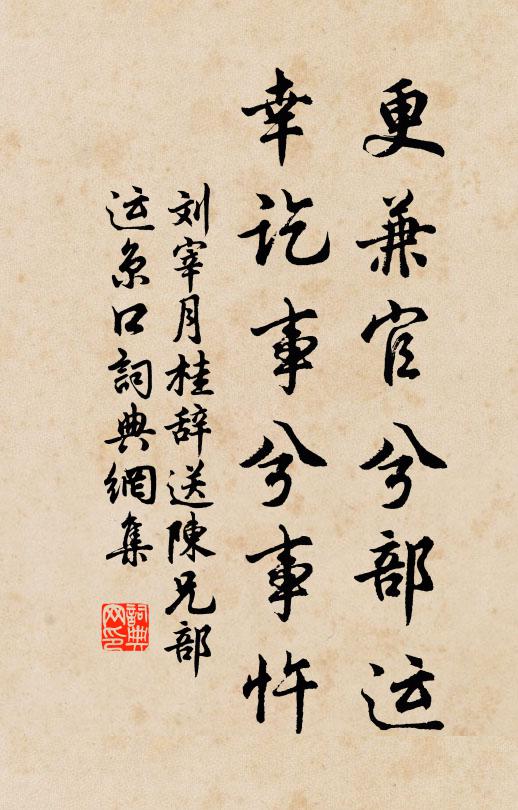 更兼官兮部运
幸讫事兮事忤
刘宰月桂辞送陳兄部
运京口詞典網集
詞典网印